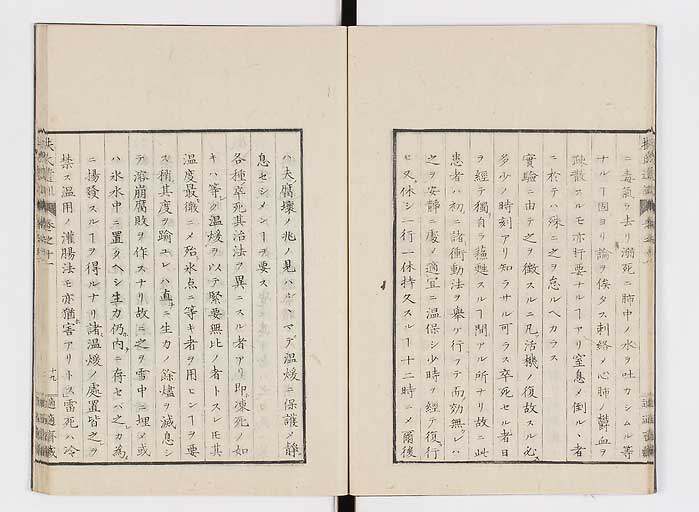 ニ毒氣ヲ去リ溺死ニ肺中ノ水ヲ吐カシムル等
ナルヿ固ヨリ論ヲ俟タス刺絡ノ心肺ノ欝血ヲ
疎散スルモ亦打要ナルヿアリ窒息ノ倒ルヽ者
ニ於テハ殊ニ之ヲ忽ルヘカラス
實驗ニ由テ之ヲ徴スルニ凡活機ノ復故スル必
多少ノ時刻アリ知ラサル可ラス卒死セル者日
ヲ經テ獨自ラ蘓甦スルヿ間アル所ナリ故ニ此
患者ハ初ニ諸衝動法ヲ擧ケ行フテ而効無レハ
之ヲ安静ニ處メ適宜ニ温保シ少時ヲ經テ復行
ヒ又休シ一行一休持久スルヿ十二時ニメ爾後
ハ夫腐壊ノ兆ノ見ハルヽマデ温煖ニ保護メ静
息セシメンヿヲ要ス
各種卒死其治法ヲ異ニスル者アリ即凍死ノ如
キハ等ク温煖ヲ以テ緊要無比ノ者トスレモ其
温度最微ニメ殆氷点ニ等キ者ヲ用ヒンヿヲ要
ス稍其度ヲ踰ユレハ直ニ生力ノ餘燼ヲ滅息シ
テ溶崩腐敗ヲ作スナリ故ニ之ヲ雪中ニ埋メ或
ハ氷水中ニ置クヘシ生力仍内ニ存セバ之カ為
ニ揚發スルヿヲ得ルナリ諸温煖ノ處置皆之ヲ
禁ス温用ノ灌腸法モ亦猶害アリトス雷死ハ冷
扶氏遺訓 卷之十一 十九 適適齋藏